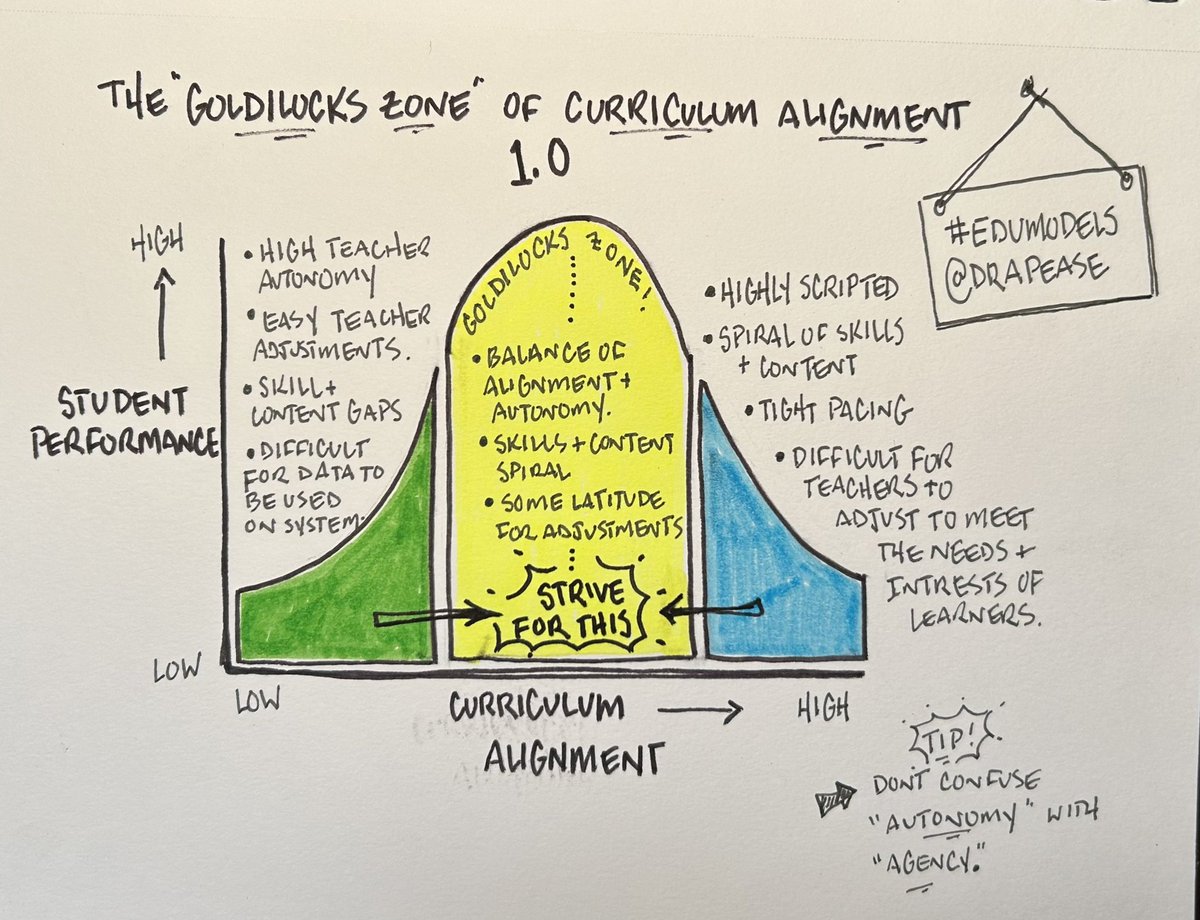 THE "GOLDILOCKS ZONE" OF CURRICULUM ALIGNMENT
1.0
#EDUMODELS
@DRAPEASE
HIGH
STUDENT
PERFORMANCE
LOW
• HIGH TEACHER
AUTONOMY
• EASY TEACHER
ADJUSTMENTS.
• SKILL +
CONTENT GAPS
• DIFFICULT
FOR DATA TO
BE USED
ON SYSTEM.
GOLDILOCKS ZONE!
• BALANCE OF
ALIGNMENT +
AUTONOMY.
• SKILLS + CONTENT
SPIRAL
• SOME LATITUDE
FOR ADJUSTMENTS
STRIVE
FOR THIS
• HIGHLY SCRIPTED
• SPIRAL OF SKILLS
+ CONTENT
• TIGHT PACING
• DIFFICULT FOR
TEACHERS TO
ADJUST TO MEET
THE NEEDS +
INTRESTS OF
LEARNERS.
LOW
CURRICULUM
ALIGNMENT
HIGH
TIP!
DONT CONFUSE
"AUTONOMY" WITH
"AGENCY."